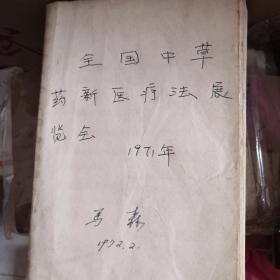 全国中草
药新医疗法展
览会
1971年
马森
1972.2.